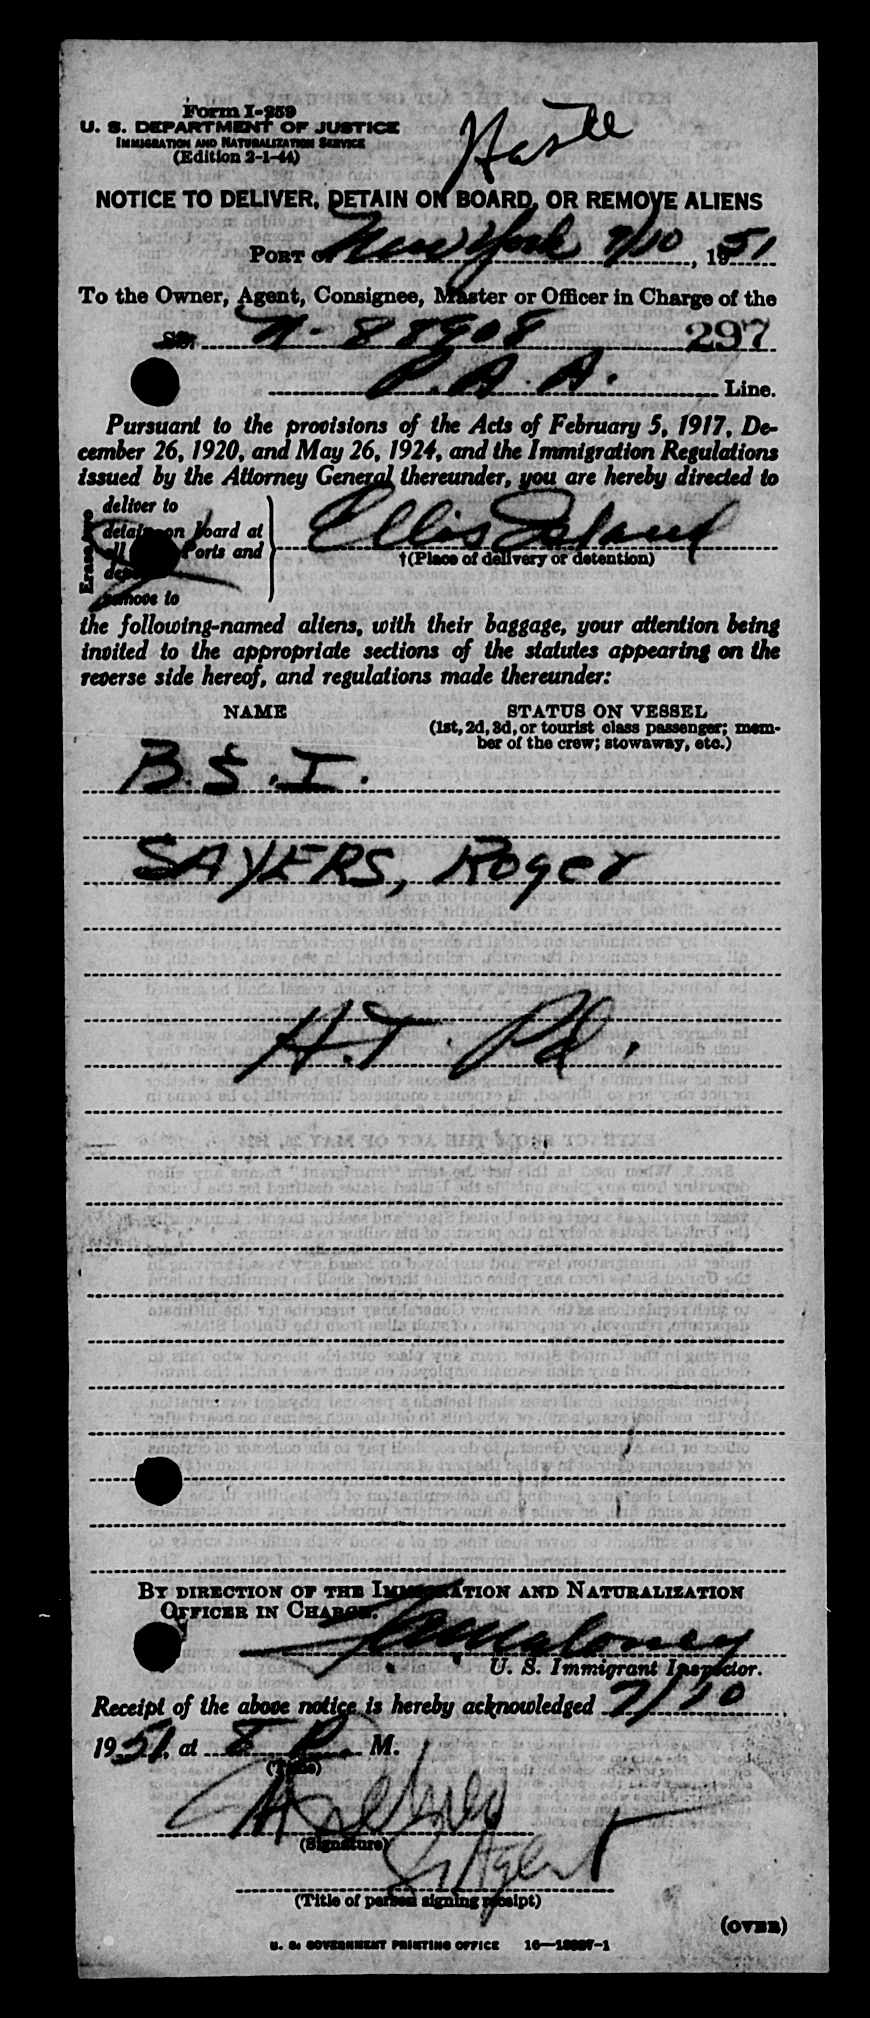 Form I-259
U. S. DEPARTMENT OF JUSTICE
IMMIGRATION AND NATURALIZATION SERVICE
(Edition 2-1-44)
NOTICE TO DELIVER, DETAIN ON BOARD, OR REMOVE ALIENS
PORT OF New York 7/10, 1951
To the Owner, Agent, Consignee, Master or Officer in Charge of the
SS. N-88908 297
P.A.A. Line.
Pursuant to the provisions of the Acts of February 5, 1917, De-
cember 26, 1920, and May 26, 1924, and the Immigration Regulations
issued by the Attorney General thereunder, you are hereby directed to
Erase two
deliver to
detain on board at
all Ports and
remove to
Ellis Island
†(Place of delivery or detention)
the following-named aliens, with their baggage, your attention being
invited to the appropriate sections of the statutes appearing on the
reverse side hereof, and regulations made thereunder:
NAME STATUS ON VESSEL
(1st, 2d, 3d, or tourist class passenger; mem-
ber of the crew; stowaway, etc.)
B.S.I.
SAYERS, Roger
H.T. Pd.
BY DIRECTION OF THE IMMIGRATION AND NATURALIZATION
OFFICER IN CHARGE.
Maloney
U. S. Immigrant Inspector.
Receipt of the above notice is hereby acknowledged 7/10
1951, at 8 P. M.
(Time)
(Signature)
Agent
(Title of person signing receipt)
(OVER)
U. S. GOVERNMENT PRINTING OFFICE 16—13297-1